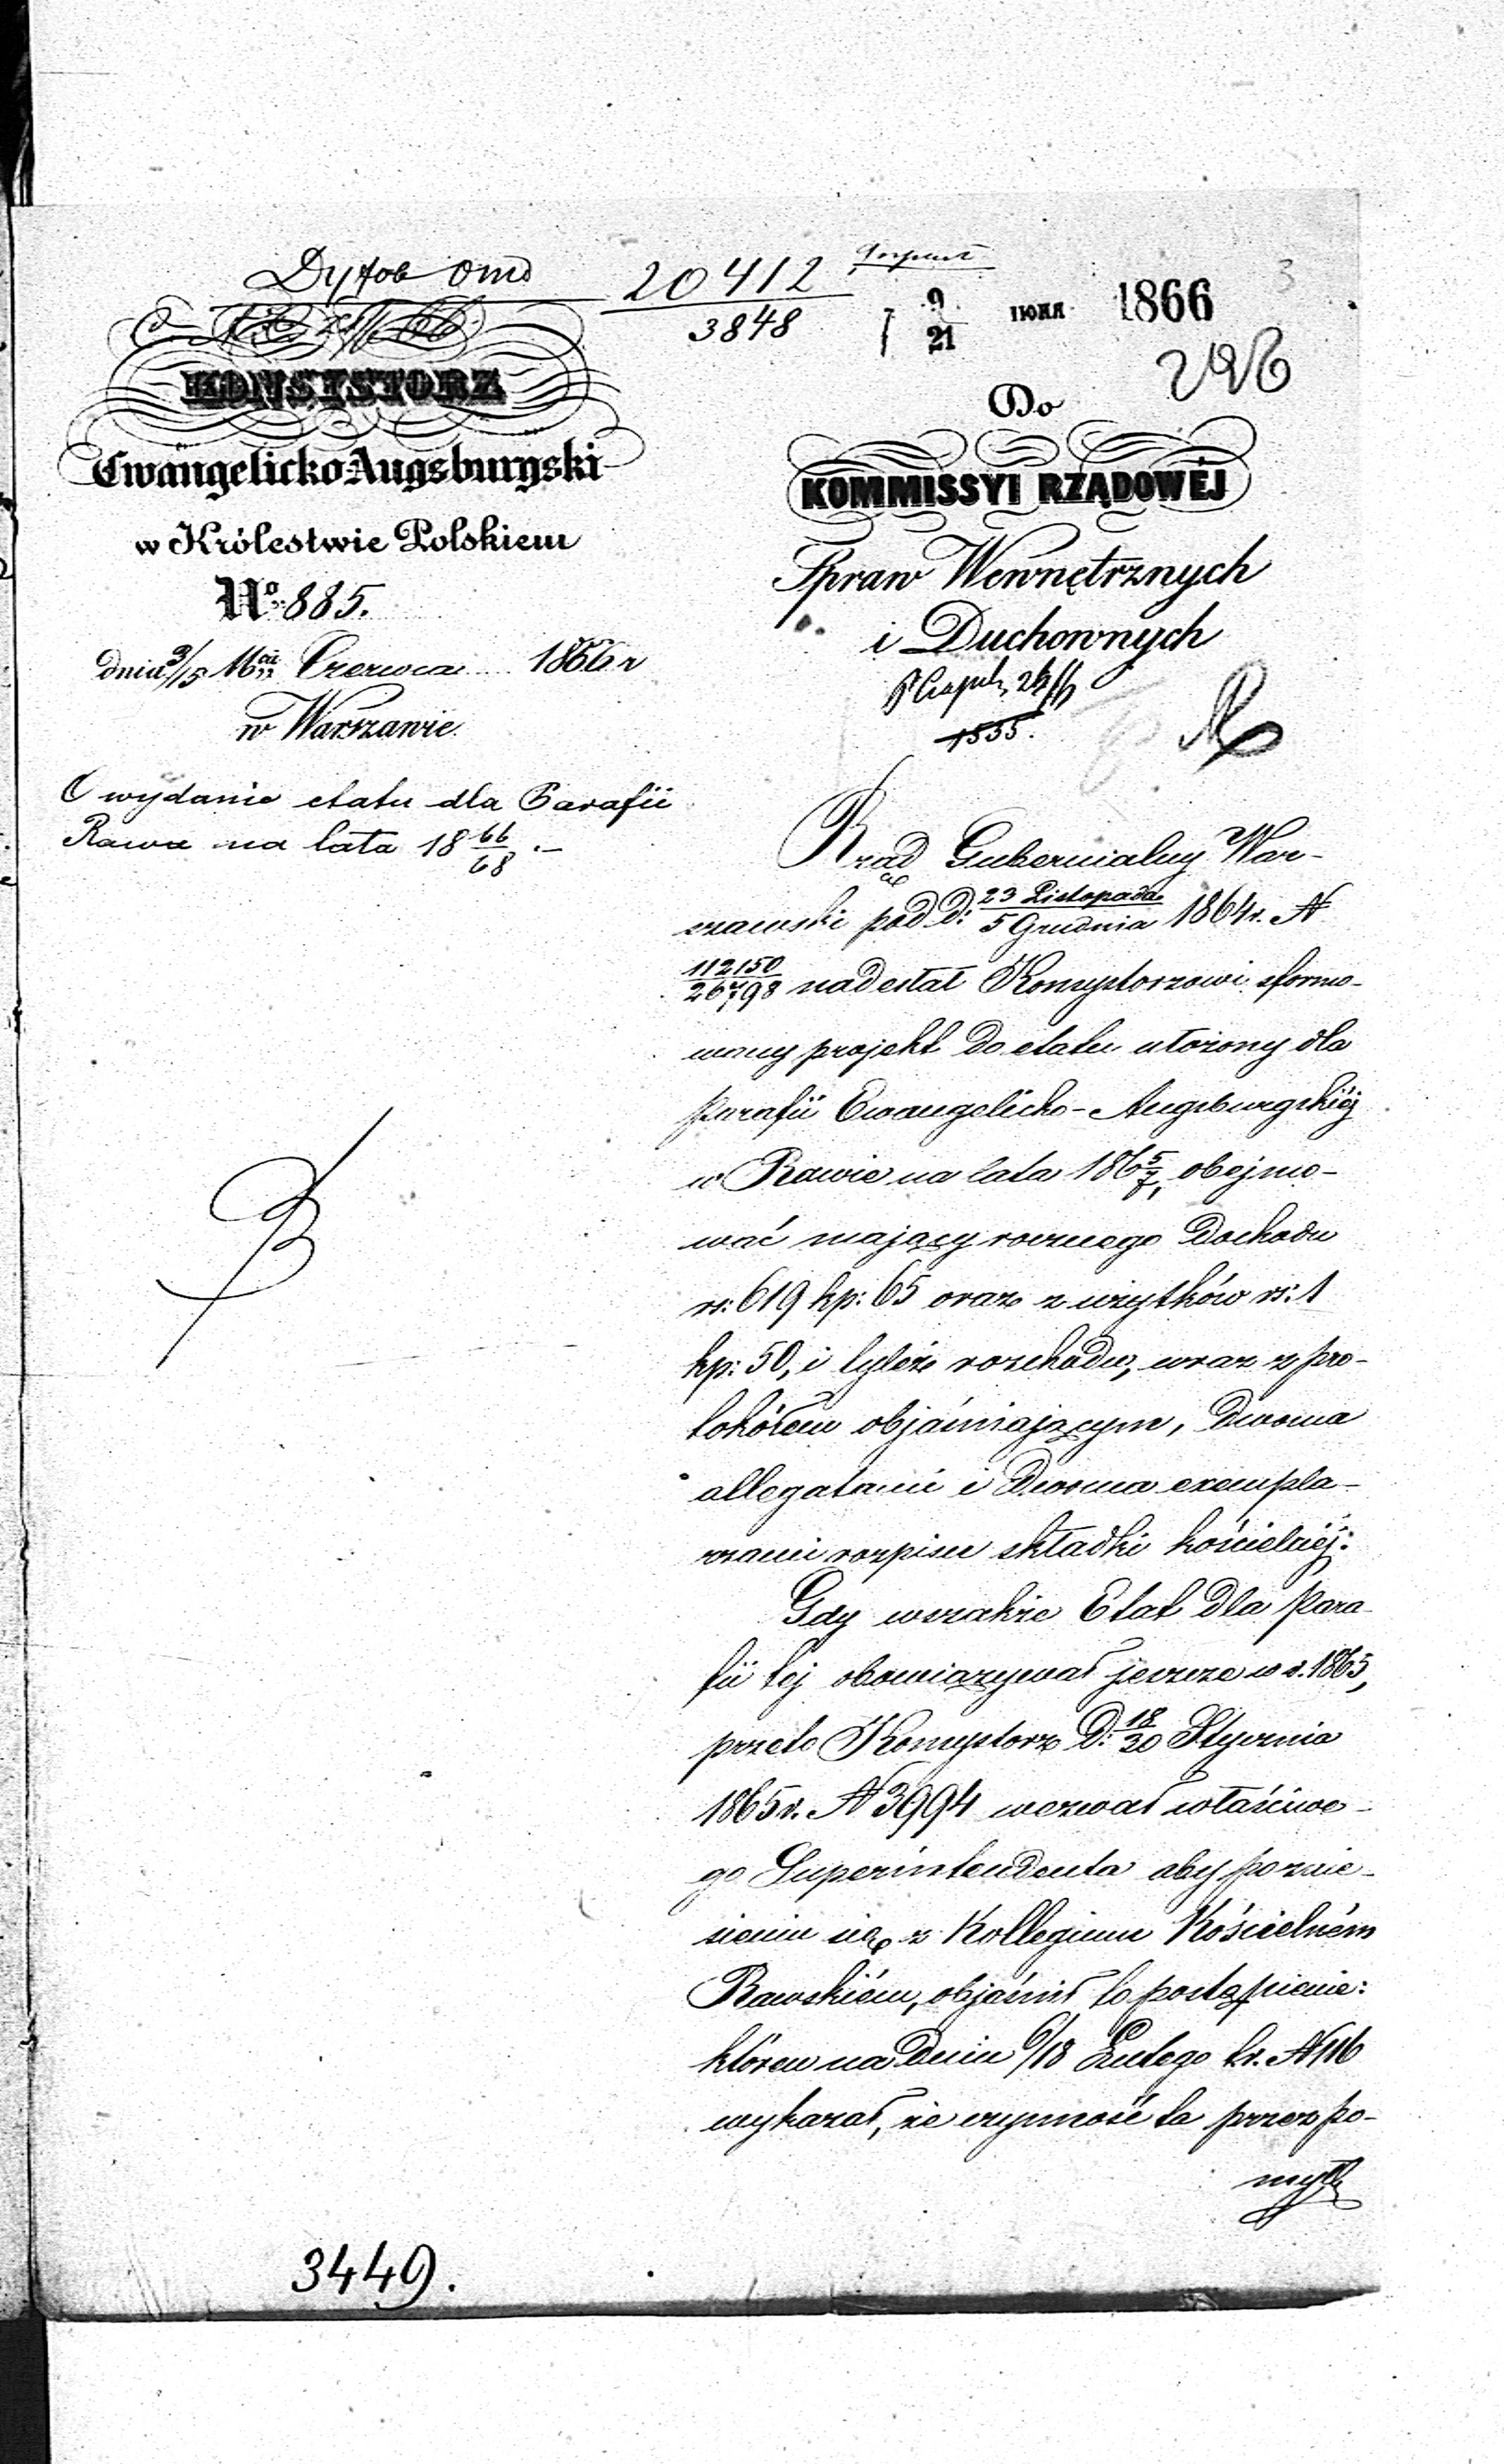 20412
3848
9
21
ІЮНЯ 1866
3
KONSYSTORZ
Ewangelicko-Augsburgski
w Królestwie Polskiem
No 885.
dnia 3/15 Mca Czerwca 1866 r
w Warszawie.
O wydanie etatu dla Parafii
Rawa na lata 18 66/68 .–
Do
KOMMISSYI RZĄDOWÉJ
Spraw Wewnętrznych
i Duchownych
1555.
Rząd Gubernialny War-
szawski pod d: 23 Listopada/5 Grudnia 1864 r. N
112150/26798 nadesłał Konsystorzowi sformo-
wany projekt do etatu ułożony dla
Parafii Ewangelicko-Augsburgskiéj
w Rawie na lata 186 5/7, obejmo-
wać mający rocznego dochodu
rs: 619 kp: 65 oraz z użytków rs: 1
kp: 50, i tyleż rozchodu, wraz z pro-
tokółem objaśniającym, dwoma
allegatami i dwoma exempla-
rzami rozpisu składki kościelnéj:
Gdy wszakże Etat dla Para-
fii tej obowiązywał jeszcze w r. 1865,
przeto Konsystorz d: 18/30 Stycznia
1865 r. N 3994 wezwał właściwe-
go Superintendenta aby po znie-
sieniu się z Kollegium Kościelném
Rawskiém, objaśnił to postąpienie:
któren na dniu 6/18 Lutego t.r. N 116
wykazał, że czynność ta przez po-
myłk
3449.